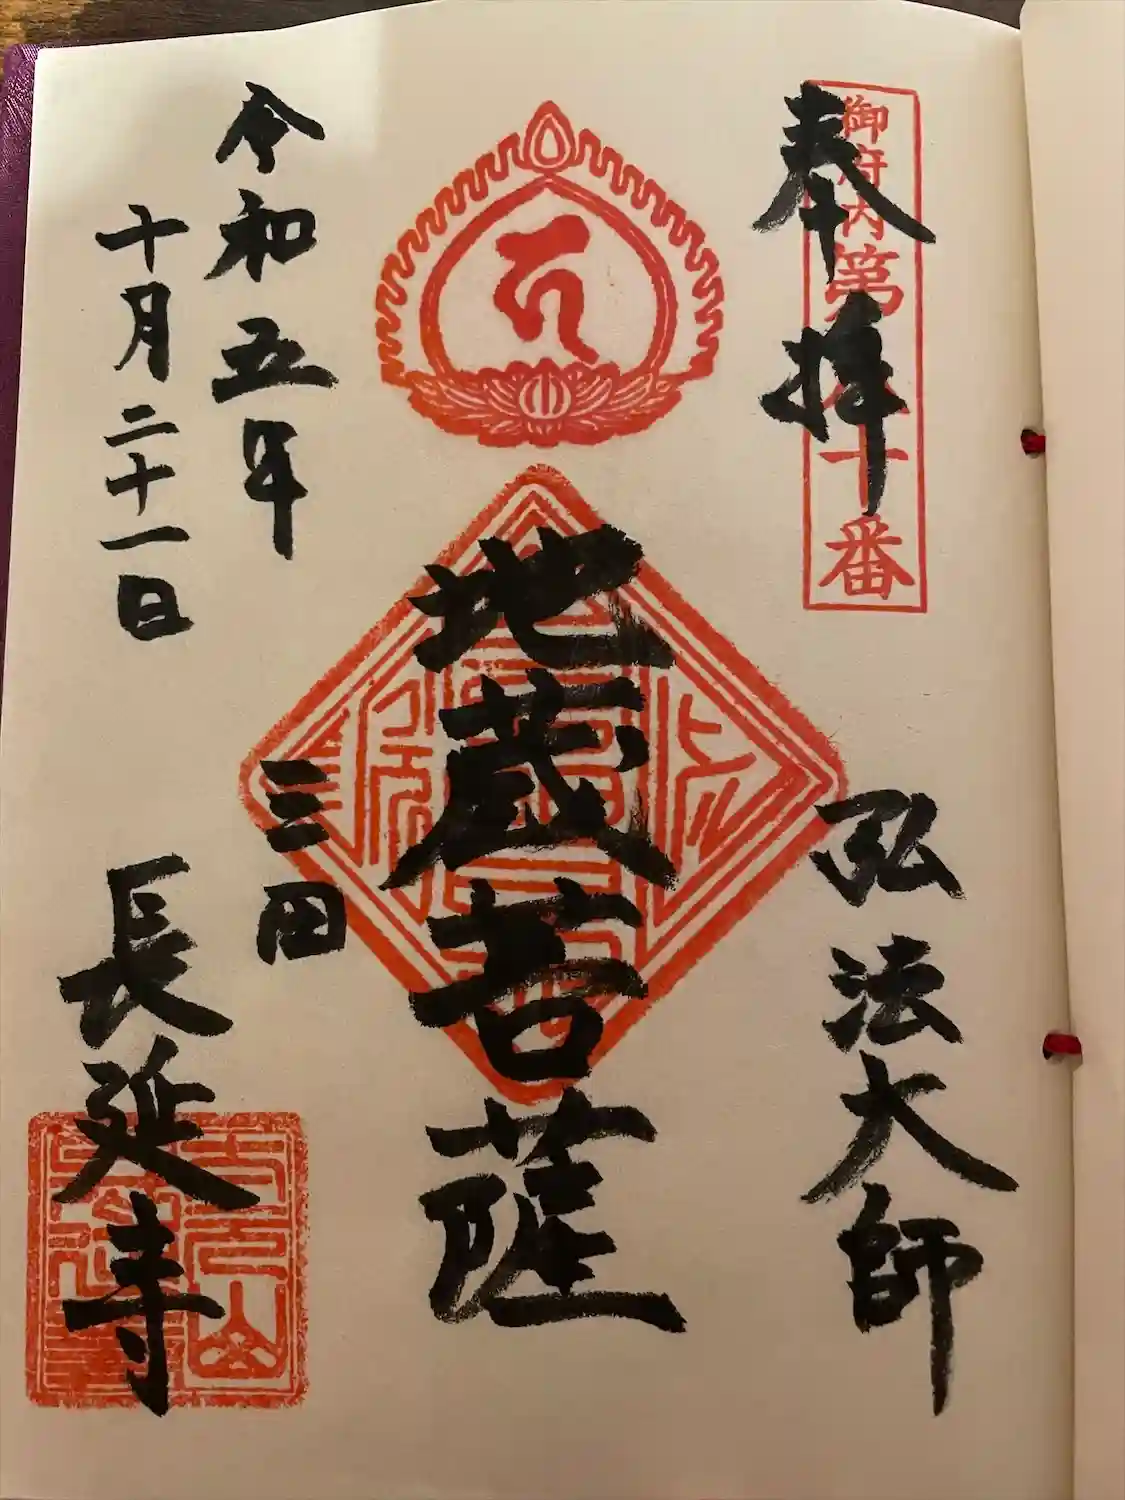 奉拝
御府内第八十番
弘法大師
地蔵菩薩
三田
令和五年
十月二十一日
長延寺